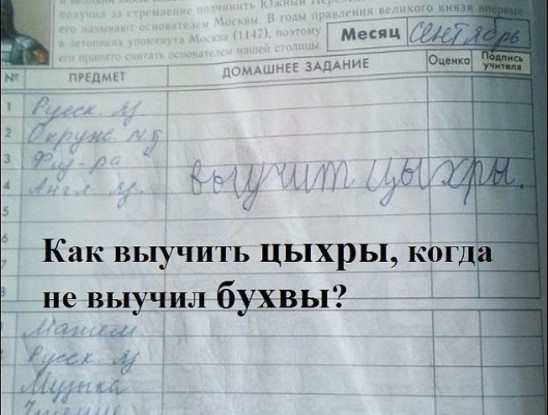 получил за стремление подчинить Южный
его называют основателем Москвы. В годы правления великого князя впервые
в летописях упомянута Москва (1147), поэтому
его принято считать основателем нашей столицы.
Месяц сентябрь
№ ПРЕДМЕТ ДОМАШНЕЕ ЗАДАНИЕ Оценка Подпись учителя
1 Русск. яз
2 Окруж.
3 Физ-ра
4 Англ яз. выучит цыхры.
5
6
Как выучить цыхры, когда
7
не выучил бухвы?
8
1 Матем
Русск яз
Музыка
Чтение